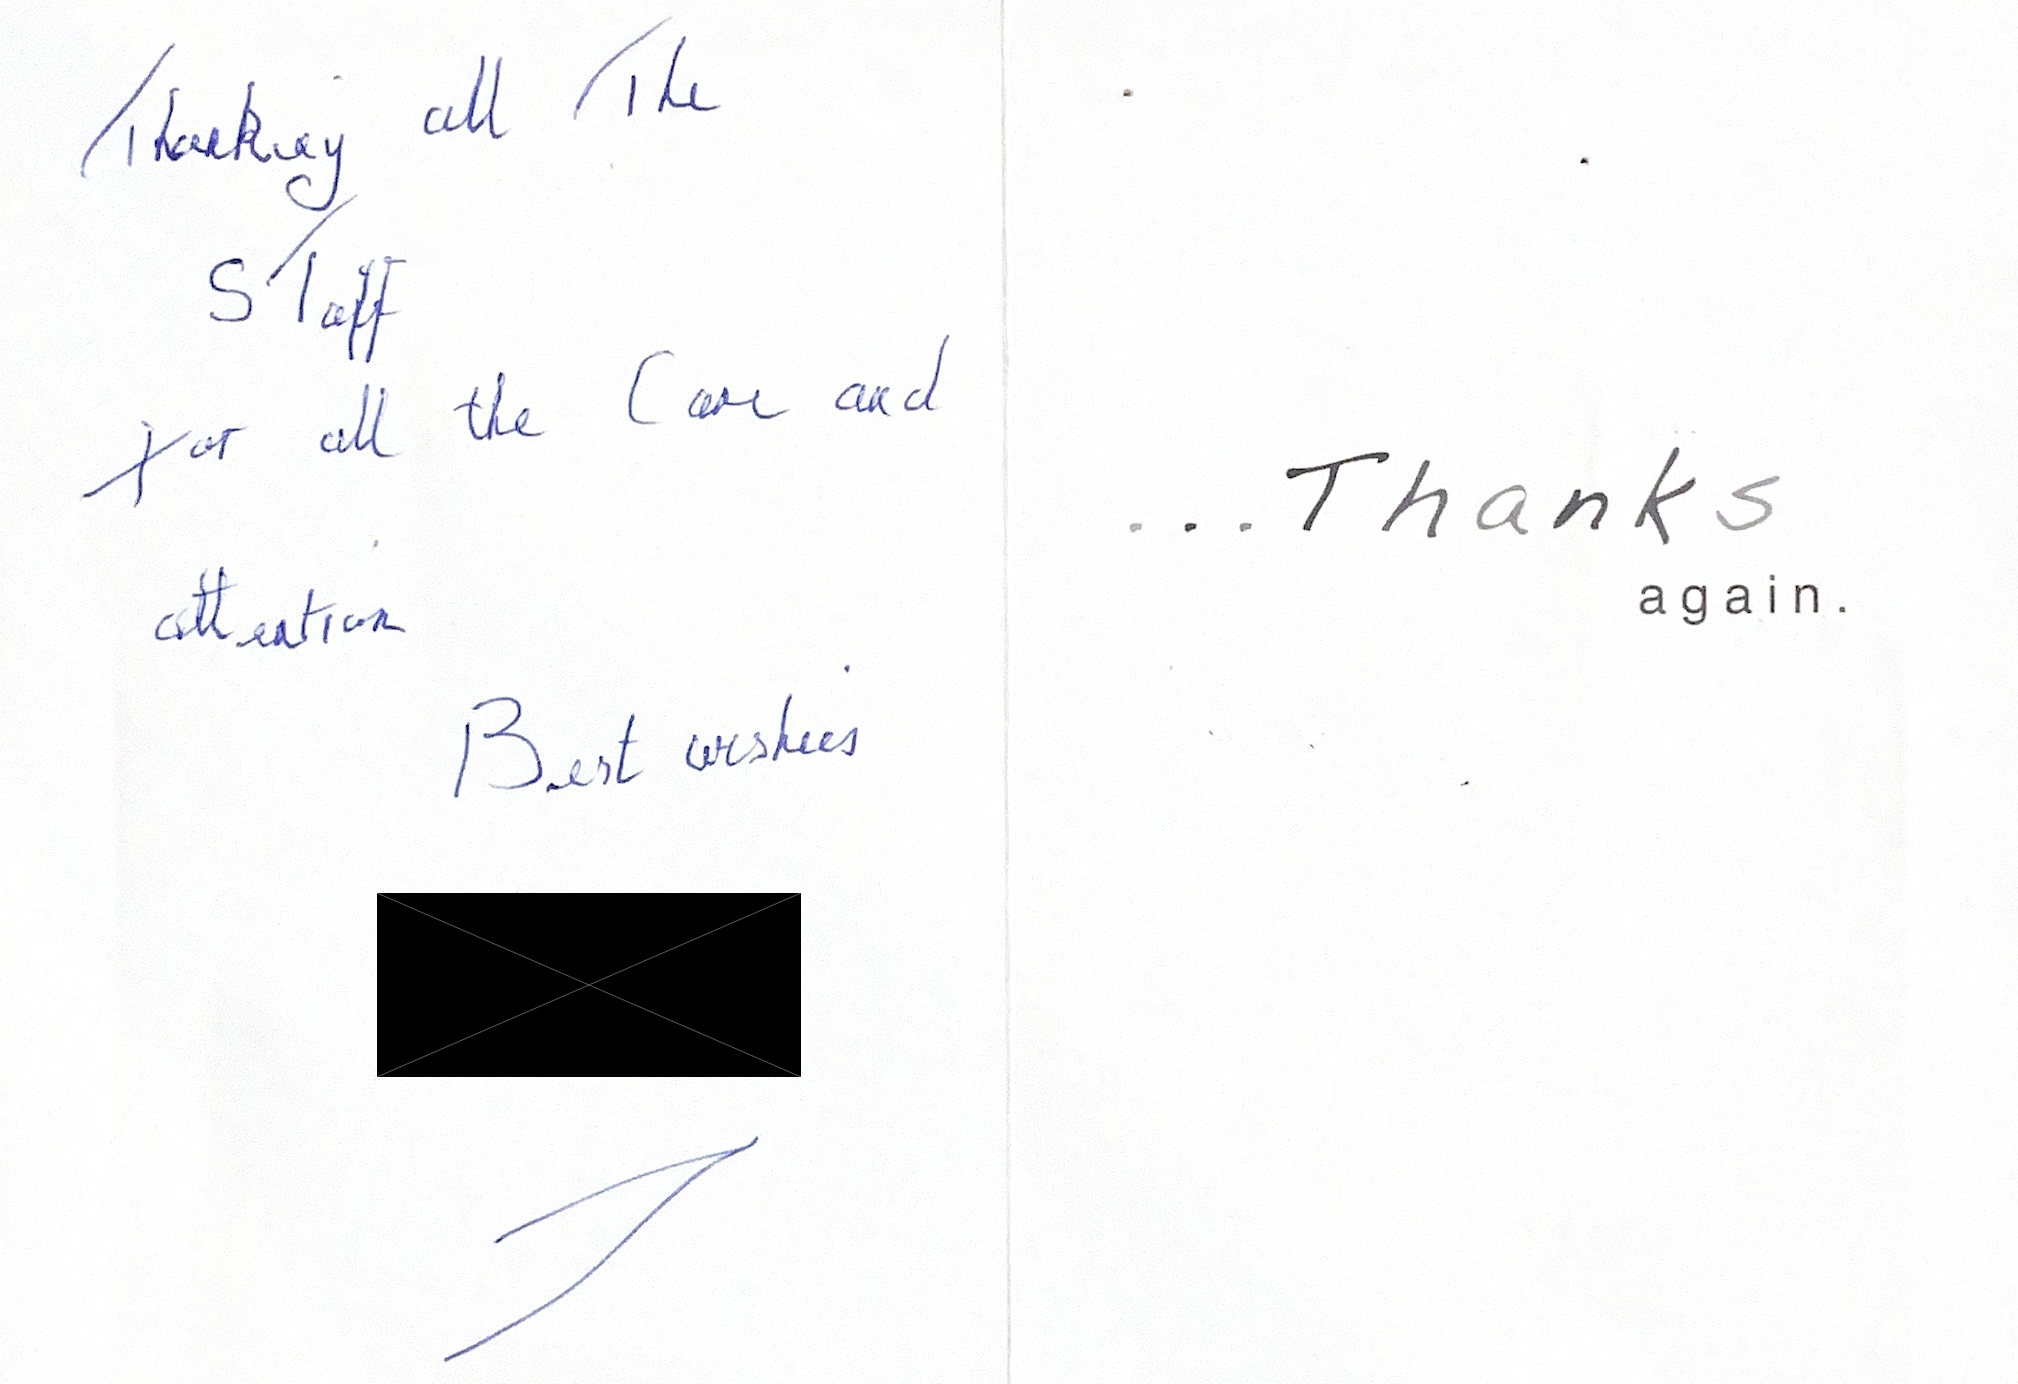 Thanking all The
Staff
for all the Care and
attention
Best wishies
...Thanks
again.